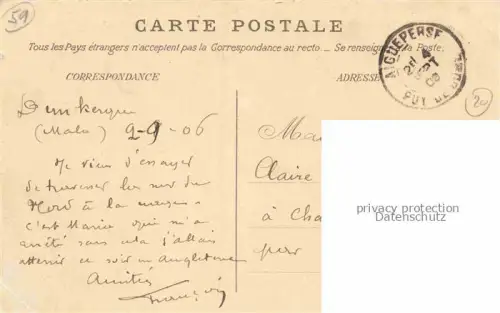 59
CARTE POSTALE
Tous les Pays étrangers n'acceptent pas la Correspondance au recto. — Se renseigner à la Poste.
CORRESPONDANCE
ADRESSE
AIGUEPERSE
PUY DE DOME
20
Dunkerque
(Malo) 2-9-06
Je viens d'essayer
de traverser la mer du
Nord à la nage
c'est Marie qui m'a
arrêté sans cela j'allais
atterrir ce soir en Angleterre
Amitiés
François
Claire
à Cha
par
privacy protection
Datenschutz